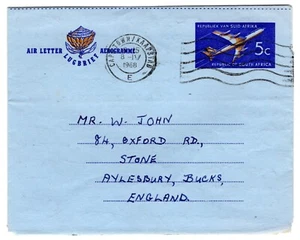 REPUBLIEK VAN SUID-AFRIKA
5c
REPUBLIC OF SOUTH AFRICA
AIR LETTER AEROGRAMME
LUGBRIEF
CAPE TOWN/KAAPSTAD
8-IV
1968
E
MR. W. JOHN
84, OXFORD RD.,
STONE
AYLESBURY, BUCKS,
ENGLAND.